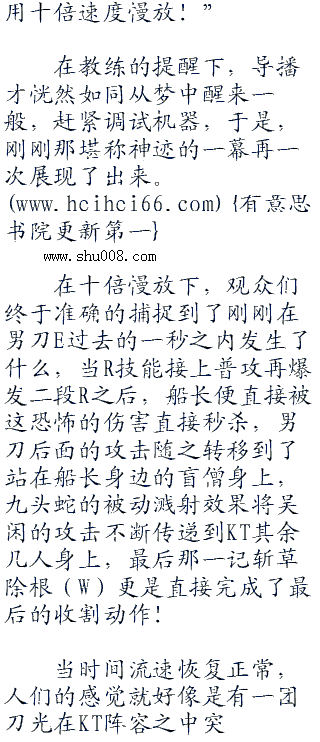 用十倍速度慢放！”
在教练的提醒下，导播
才恍然如同从梦中醒来一
般，赶紧调试机器，于是，
刚刚那堪称神迹的一幕再一
次展现了出来。
(www.hcihci66.com){有意思
书院更新第一}
www.shu008.com
在十倍慢放下，观众们
终于准确的捕捉到了刚刚在
男刀E过去的一秒之内发生了
什么，当R技能接上普攻再爆
发二段R之后，船长便直接被
这恐怖的伤害直接秒杀，男
刀后面的攻击随之转移到了
站在船长身边的盲僧身上，
九头蛇的被动溅射效果将吴
闲的攻击不断传递到KT其余
几人身上，最后那一记斩草
除根（W）更是直接完成了最
后的收割动作！
当时间流速恢复正常，
人们的感觉就好像是有一团
刀光在KT阵容之中突